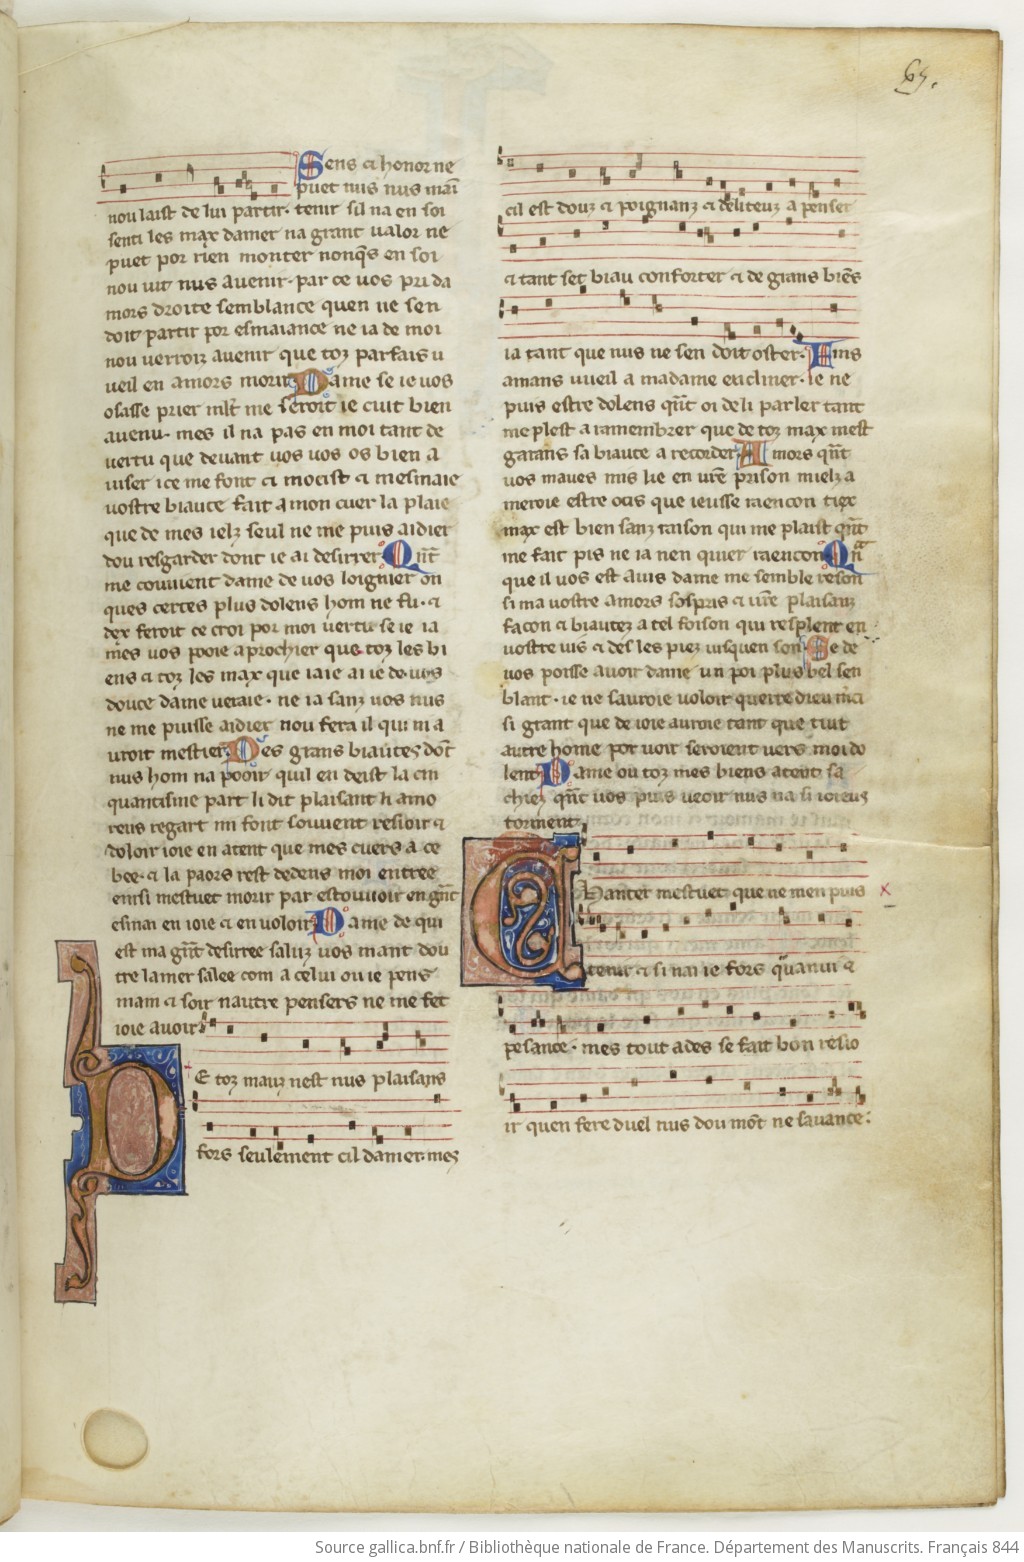 65.
Sens ⁊ honor ne
puet nus nus mãi
nou laist de lui partir. tenir sil na en soi
senti les max damer na grant ualor ne
puet por rien monter nonq̃s en soi
nou uit nus auenir. par ce uos pri da
mors droite semblance quen ne sen
doit partir por esmaiance ne ia de moi
nou uerroiz auenir que toz parfais u
ueil en amors morir. Dame se ie uos
osasse prier ml̃t me seroit ie cuit bien
auenu. mes il na pas en moi tant de
uertu que deuant uos uos os bien a
uiser ice me font ⁊ mocist ⁊ mesmaie
uostre biaute fait a mon cuer la plaie
que de mes ielz seul ne me puis aidier
dou resgarder dont ie ai desirrer. Qñt
me couuient dame de uos loignier on
ques certes plus dolens hom ne fu. ⁊
dex feroit ce croi por moi uertu se ie ia
mes uos pooie aprochier que toz les bi
ens ⁊ toz les max que iaie ai ie de uos
douce dame ueraie. ne ia sanz uos nus
ne me puisse aidier nou fera il qui ni a
uroit mestier. Des grans biautez dõt
nus hom na pooir quil en deist la cin
quantisme part li dit plaisant li amo
reus regart mi font souuent resioir ⁊
doloir ioie en atent que mes cuers a ce
bee. ⁊ la paors rest dedens moi entree
ensi mestuet morir par estouuoir en gñt
esmai en ioie ⁊ en uoloir. Dame de qui
est ma gñt desirree saluz uos mant dou
tre la mer salee com a celui ou ie pens
mam ⁊ soir nautre pensers ne me fet
ioie auoir.
DE toz maux nest nus plaisans
fors seulement cil damer. mes
cil est douz ⁊ poignanz ⁊ deliteuz a penser
⁊ tant set biau conforter ⁊ de grans biẽs
ia tant que nus ne sen doit oster. Fins
amans uueil a madame encliner. ie ne
puis estre dolens qñt oi de li parler tant
me plest a ramembrer que de toz max mest
garans sa biaute a recorder. Amors qñt
uos maues mis lie en ur̃e prison mielz a
meroie estre ocis que ieusse raencon tiex
max est bien sanz raison qui me plaist qñt
me fait pis ne ia nen quier raencon. Qñ
que il uos est auis dame me semble reson
si ma uostre amors sospris ⁊ ur̃e plaisanz
facon ⁊ biautez a tel foison qui resplent en
uostre uis ⁊ des les piez iusquen son. Se de
uos poisse auoir dame un poi plus bel sen
blant. ie ne sauroie uoloir querre dieu mci
si grant que de ioie auroie tant que tuit
autre home por uoir seroient uers moi do
lent. Dame ou toz mes biens atent sa
chiez qñt uos puis ueoir nus na si ioieus
torment.
CHanter mestuet que ne men puis
tenir ⁊ si nai ie fors quanui ⁊
pesance. mes tout ades se fait bon resio
ir quen fere duel nus dou mõt ne sauance.
Source gallica.bnf.fr / Bibliothèque nationale de France. Département des Manuscrits. Français 844